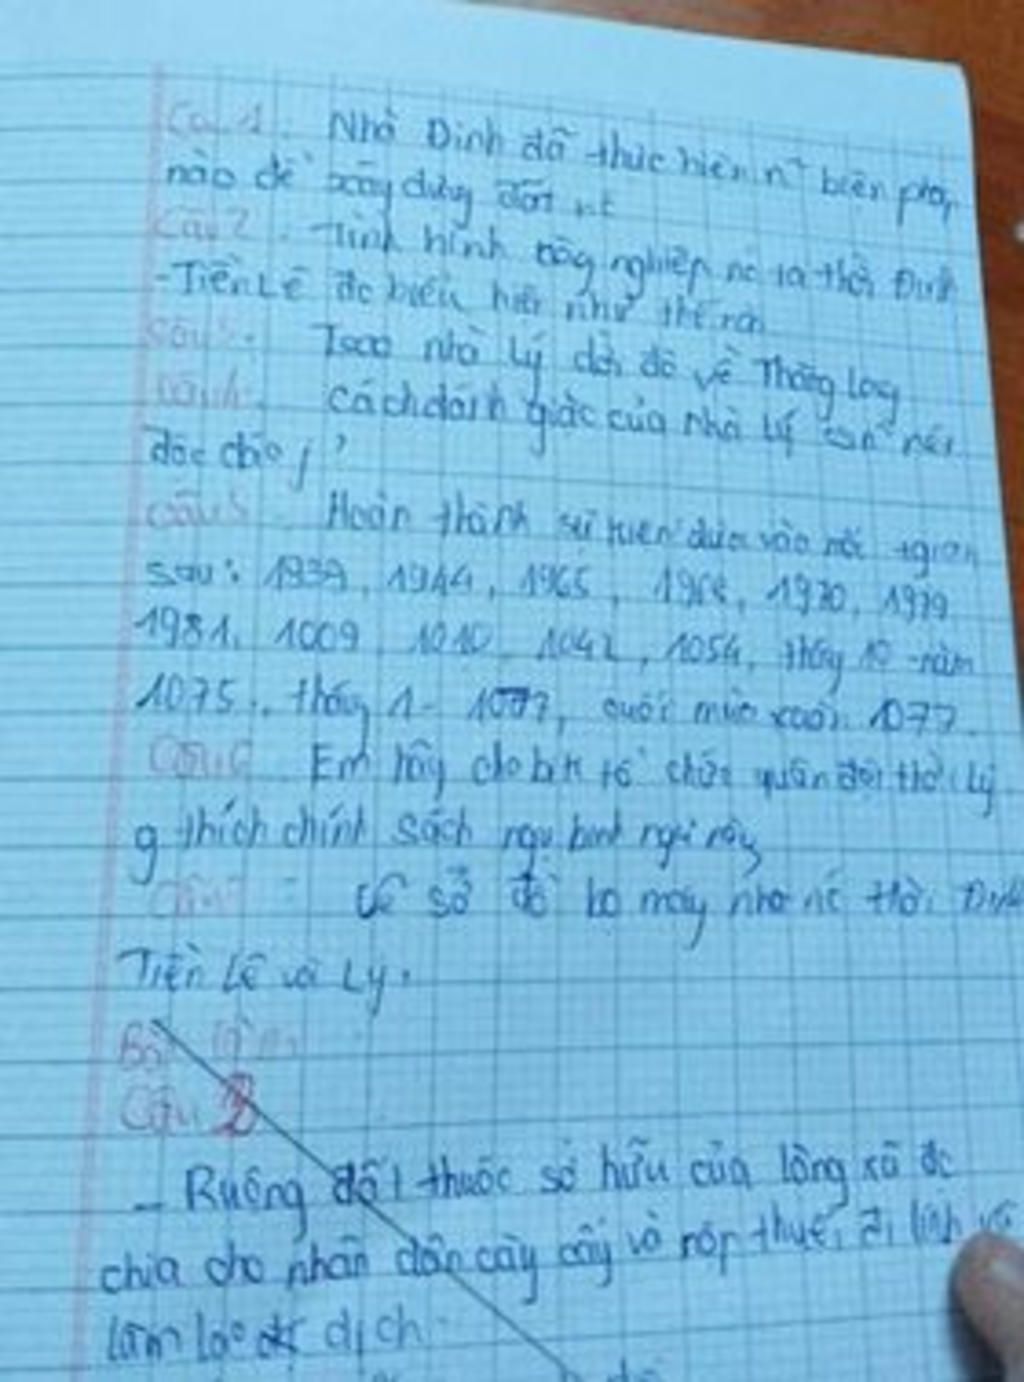 Câu 1. Nhà Đinh đã thực hiện n² biện pháp
nào để xây dựng đất nc
Câu 2. Tình hình nông nghiệp nc ta thời Đinh
-Tiền Lê đc biểu hiện như thế nào
Câu 3. Tsao nhà Lý dời đô về Thăng Long
Câu 4. Cách đánh giặc của nhà Lý nét
độc đáo j?
Câu 5. Hoàn thành sự kiện dựa vào mốc tgian
sau: 1939, 1944, 1965, 1968, 1970, 1979
1981, 1009, 1010, 1042, 1054, tháng 10 năm
1075, tháng 1 - 1077, cuối mùa xuân 1077.
Câu 6. Em hãy cho biết tổ chức quân đội thời Lý
g thích chính sách ngụ binh này
Câu 7 Vẽ sơ đồ bộ máy nhà nc thời Đinh
Tiền Lê và Lý.
Bài làm
Câu 2
- Ruộng đất thuộc sở hữu của làng xã đc
chia cho nhân dân cày cấy và nộp thuế, đi lính và
làm lao dịch